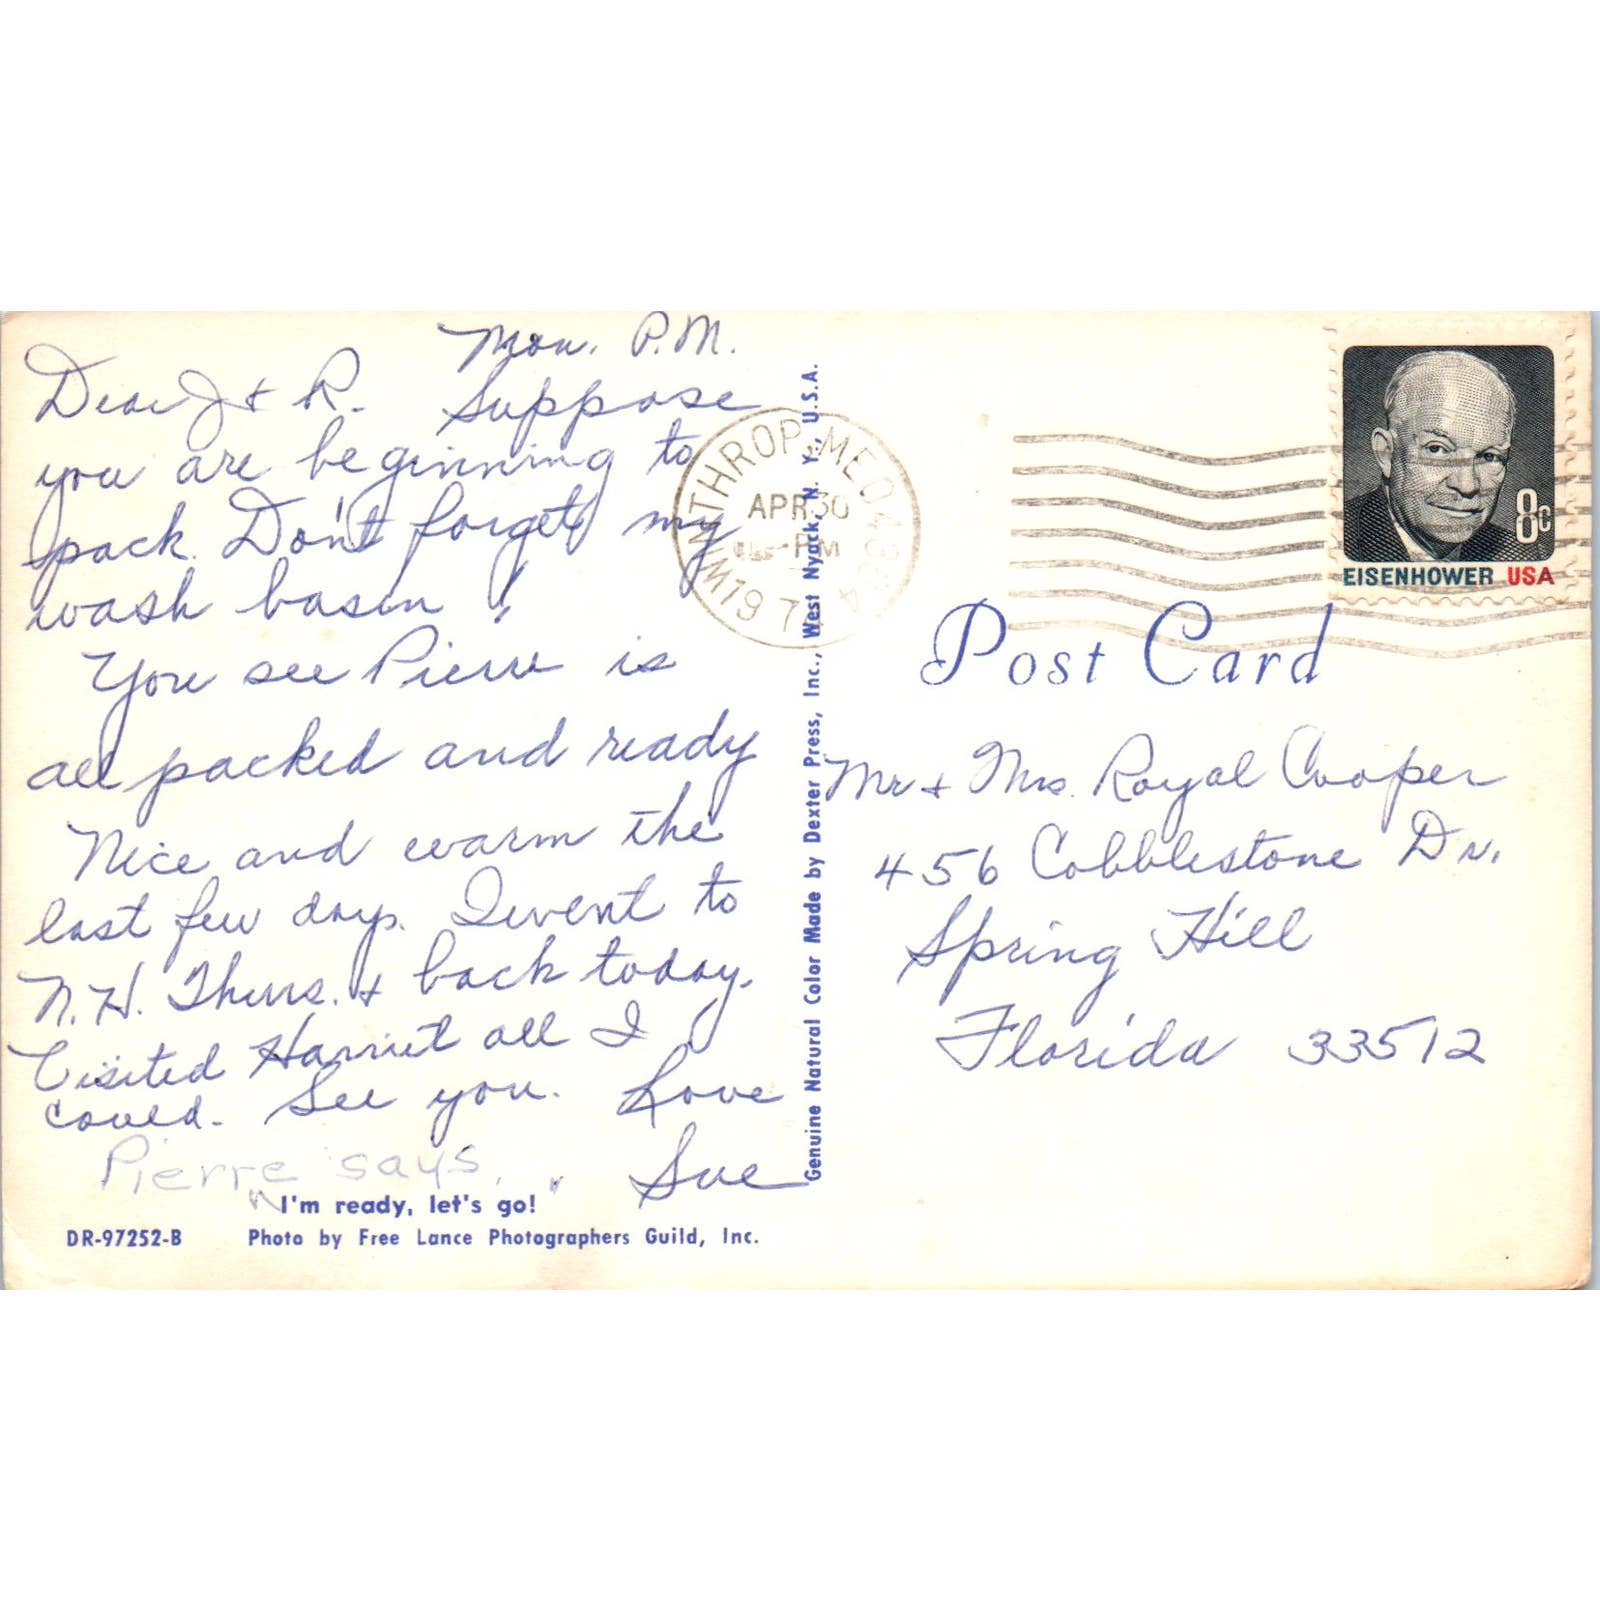 Mon. P.M.
Dear J + R. Suppose
you are beginning to
pack. Don't forget my
wash basin!
You see Pierre is
all packed and ready
Nice and warm the
last few days. I went to
N.H. Thurs. + back today.
Visited Harriet all I
could. See you. Love
Sue
Pierre says,
"I'm ready, let's go!"
DR-97252-B Photo by Free Lance Photographers Guild, Inc.
Genuine Natural Color Made by Dexter Press, Inc., West Nyack, N. Y., U.S.A.
WINTHROP, ME 04364
APR 30
PM
197
8c
EISENHOWER USA
Post Card
Mr + Mrs. Royal Cooper
456 Cobblestone Dr.
Spring Hill
Florida 33512